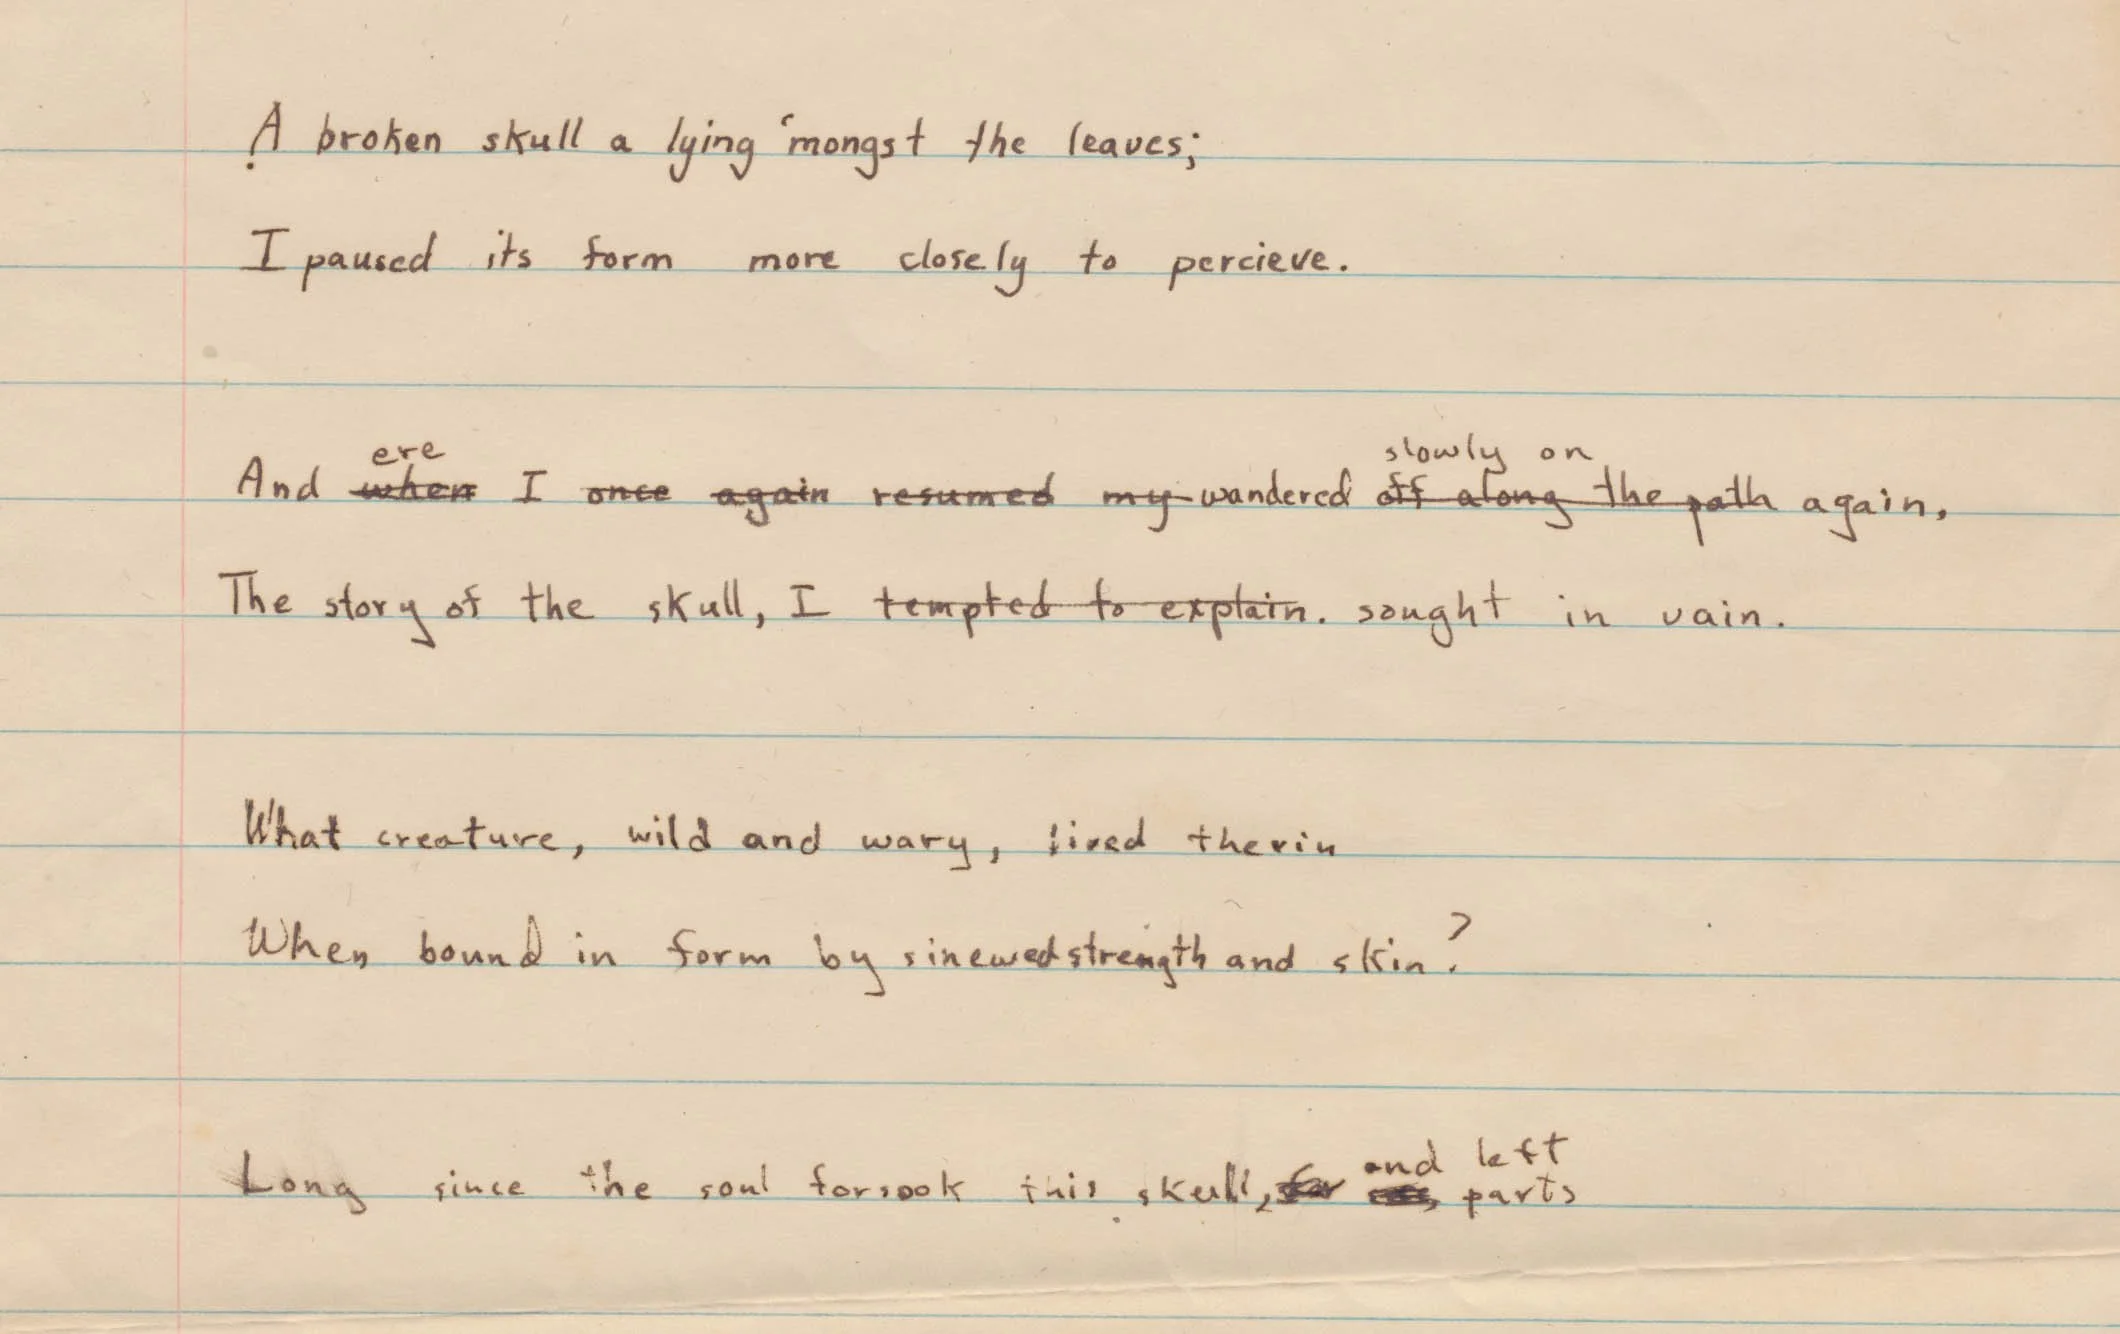 A broken skull a lying 'mongst the leaves;
I paused its form more closely to percieve.
ere slowly on
And when I once again resumed my wandered off along the path again,
The story of the skull, I tempted to explain. sought in vain.
What creature, wild and wary, lived therin
When bound in form by sinewed strength and skin?
and left
Long since the soul forsook this skull, parts